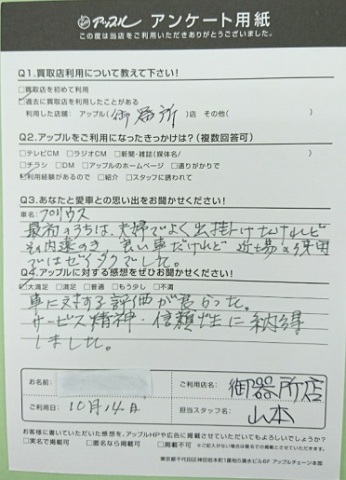 アップル アンケート用紙
この度は当店をご利用いただきありがとうございました。
Q1.買取店利用について教えて下さい!
□買取店を初めて利用
☑過去に買取店を利用したことがある
利用した店舗: アップル(御器所)店 その他( )
Q2.アップルをご利用になったきっかけは?(複数回答可)
□テレビCM □ラジオCM □新聞・雑誌(媒体名/ )
□チラシ □DM □アップルのホームページ □通りがかりで
☑利用経験があるので □紹介 □スタッフに誘われて
Q3.あなたと愛車との思い出をお聞かせください!
車名:プリウス
最初のうちは、夫婦でよく出掛けたけれど
その内遠のき、良い車だけれど 近場の採用
ではぜイタクでした。
Q4.アップルに対する感想をぜひお聞かせください!
☑大満足 □満足 □普通 □もう少し □不満
車に対する評価が良かった。
サービス精神・信頼性に納得
しました。
お名前:
ご利用店名: 御器所店
ご利用日: 10月14日
担当スタッフ名: 山本
お客様に書いていただいた感想を、アップルHPや広告に掲載させていただいてもよろしいでしょうか?
□実名で掲載可 □匿名なら掲載可 □掲載不可 ※ご記入がない場合は匿名での掲載とさせていただきます。